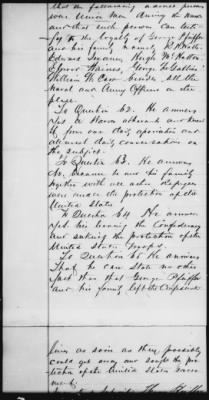 that the following named persons
were Union Men during the war
and that such persons can testi-
fy to the loyalty of George Pfeiffer
and his family namely, R. R. Nolte
Edward Hugh Mc
George
William H. Carr beside all the
Naval and Army Officers on the
place.
To Question 62. He answers
Yes. A Union adherent and knew
it from our daily
almost daily conversations on
the subject.
To Question 63. He answers
No. because he and his family
together with all other Refugees
were under the protection of the
United States
To Question 64 He answers
Yes. his leaving the Confederacy
and seeking the protection of the
United States troops.
To Question 65 He answers
That he can state no other
fact than that George Pfeiffer
and his family left the Confederate
lines as soon as they possibly
could get away and sought the pro-
tection of the United States Govern-
ment.